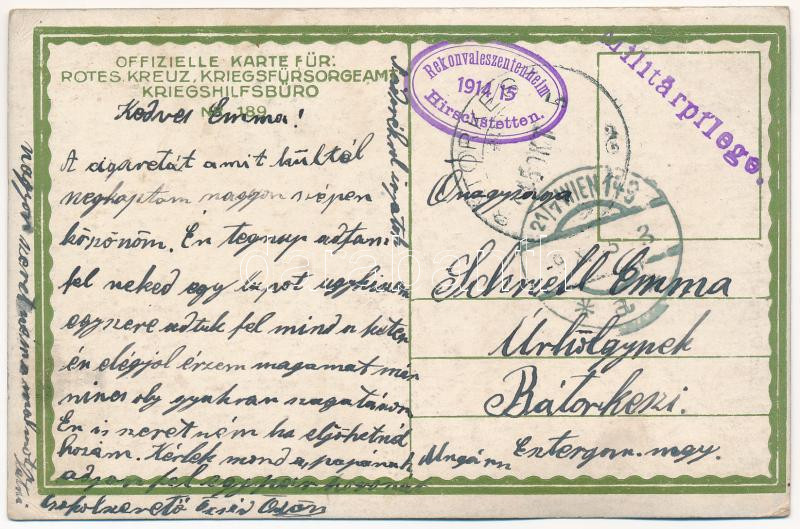 OFFIZIELLE KARTE FÜR:
ROTES KREUZ, KRIEGSFÜRSORGEAMT
KRIEGSHILFSBÜRO
Nr. 189
Kedves Emma!
A cigaretát amit kültél
megkaptam nagyon szépen
köszönöm. Én tegnap adtam
fel neked egy lapot ugy
egyszere adtuk fel mind a keten
én elégjol érzem magamat már
nincs oly gyakran
Én is szeretném ha eljöhetnél
hozám. Kérlek mond a papának
adjon fel
Csokol szerető
Rekonvaleszentenheim
1914/15
Hirschstetten.
Militärpflege.
21/7 WIEN 149
Önagysága
Schnell Emma
Úrhölgynek
Bátorkeszi.
Ungarn Esztergom. megy.